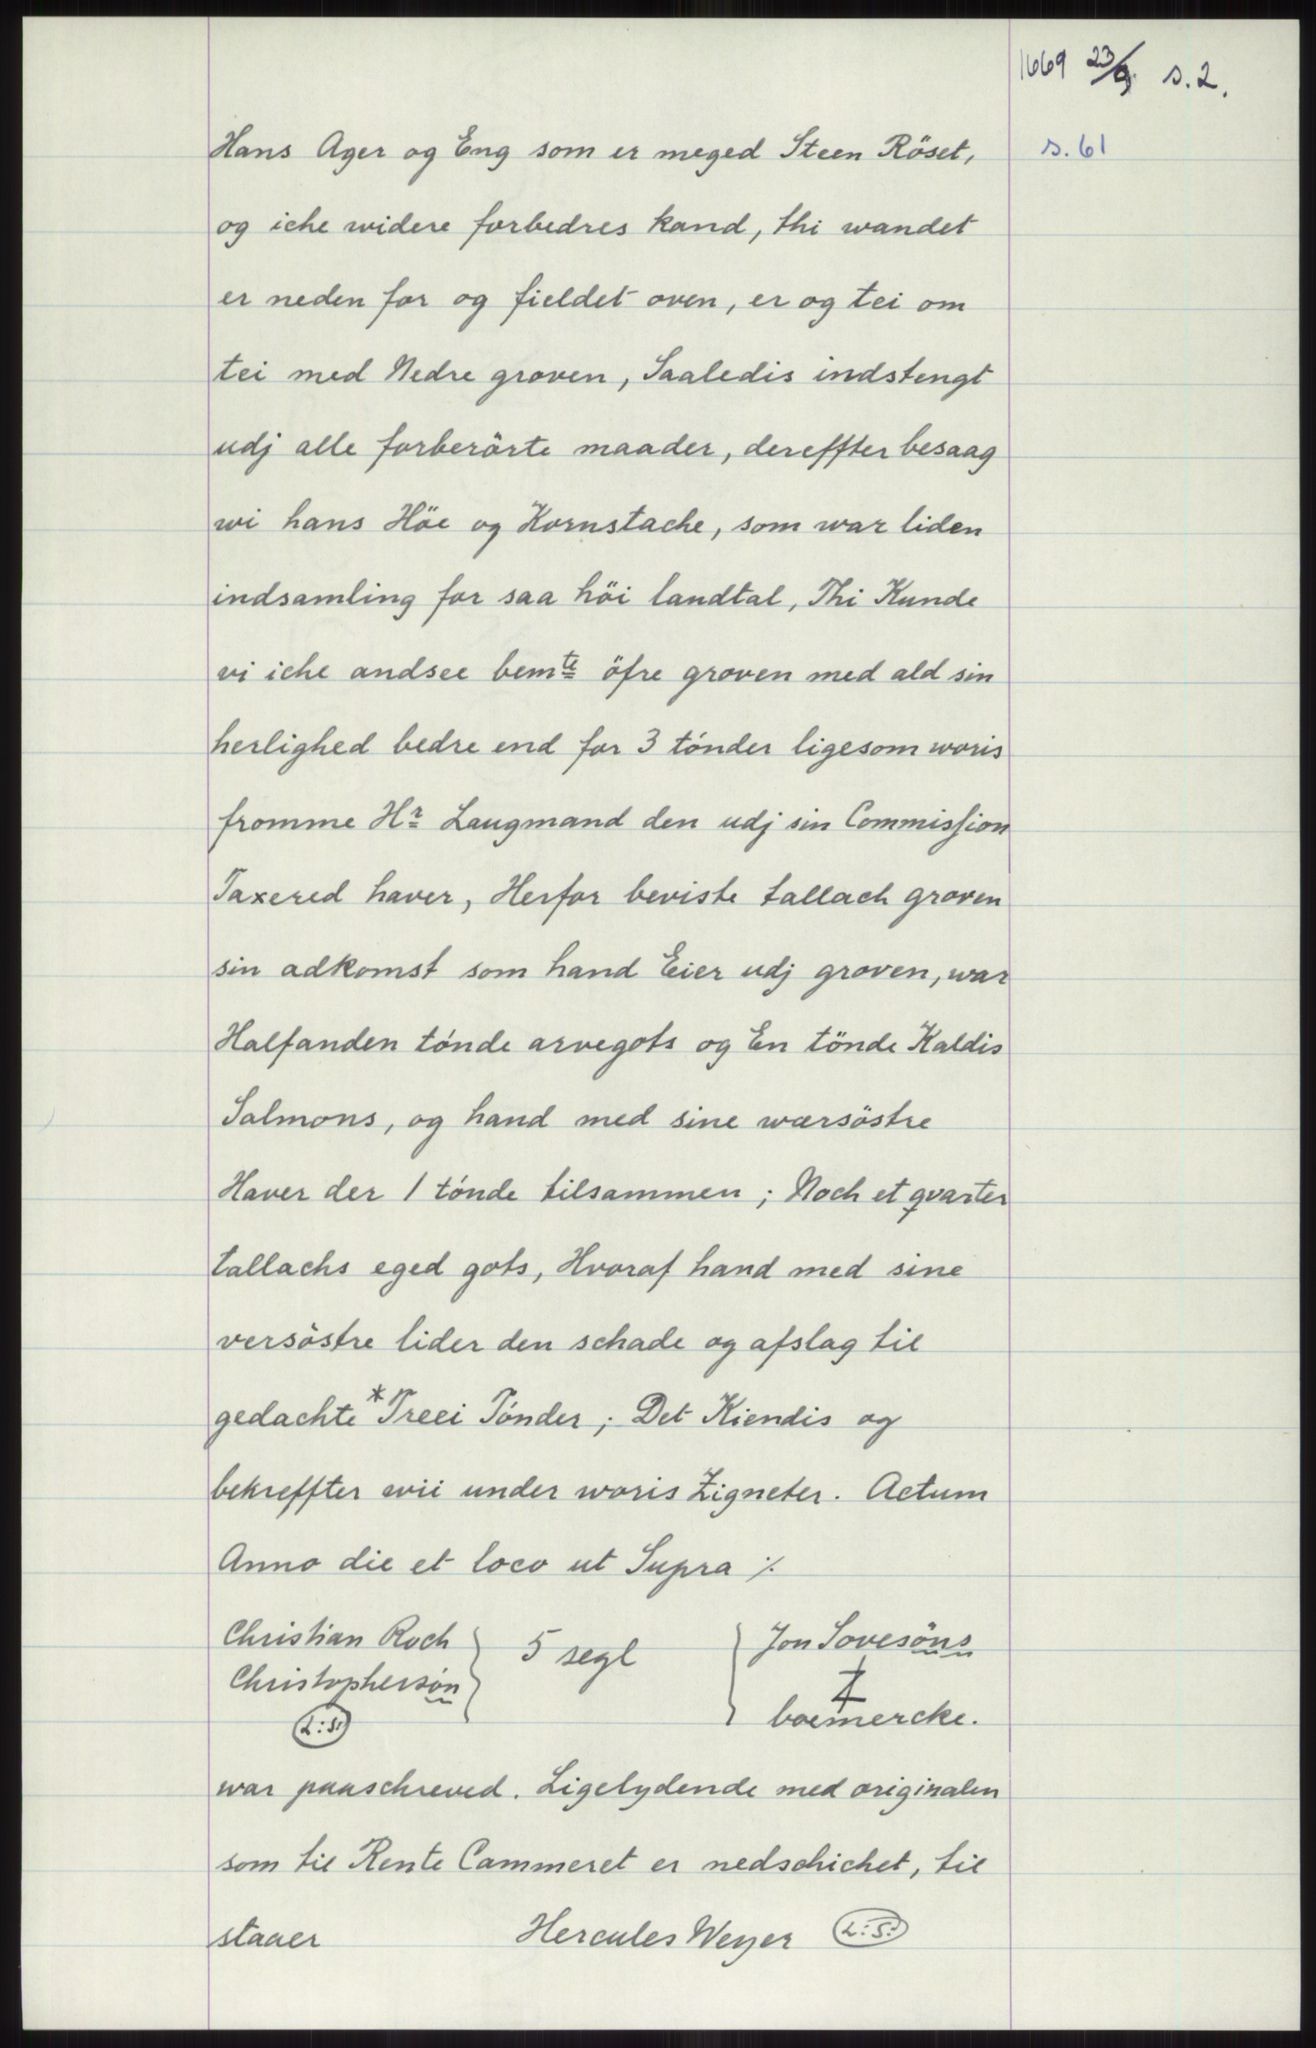 1669 23/9. s. 2.
Hans Ager og Eng som er meged Steen Röset,
s. 61
og iche widere forbedres kand, thi wandet
er neden for og fieldet oven, er og tei om
tei med Nedre groven, Saaledis indstengt
udj alle forberörte maader, dereffter besaag
wi hans Höe og Kornstache, som war liden
indsamling for saa höi landtal, Thi Kunde
vi iche andsee bemte öfre groven med ald sin
herlighed bedre end for 3 tónder ligesom woris
fromme Hr Laugmand den udj sin Commission
Taxered haver, Herfor beviste tallach groven
sin adkomst som hand Eier udj groven, war
Halfanden tónde arvegots og En tönde Kaldis
Salmons, og hand med sine wærsöstre
Haver der 1 tónde tilsammen; Noch et qvarter
tallachs eged gots, Hvoraf hand med sine
versöstre lider den schade og afslag til
gedachte *Treei Tónder; Det Kiendis og
bekreffter wii under woris Zigneter. Actum
Anno die et loco ut Supra ./.
Christian Roch
Christophersón
L: S:
5 segl
Jon Sovesöns
boemercke.
war paaschreved. Ligelydende med originalen
som til Rente Cammeret er nedschichet, til
staaer Hercules Weyer L: S: